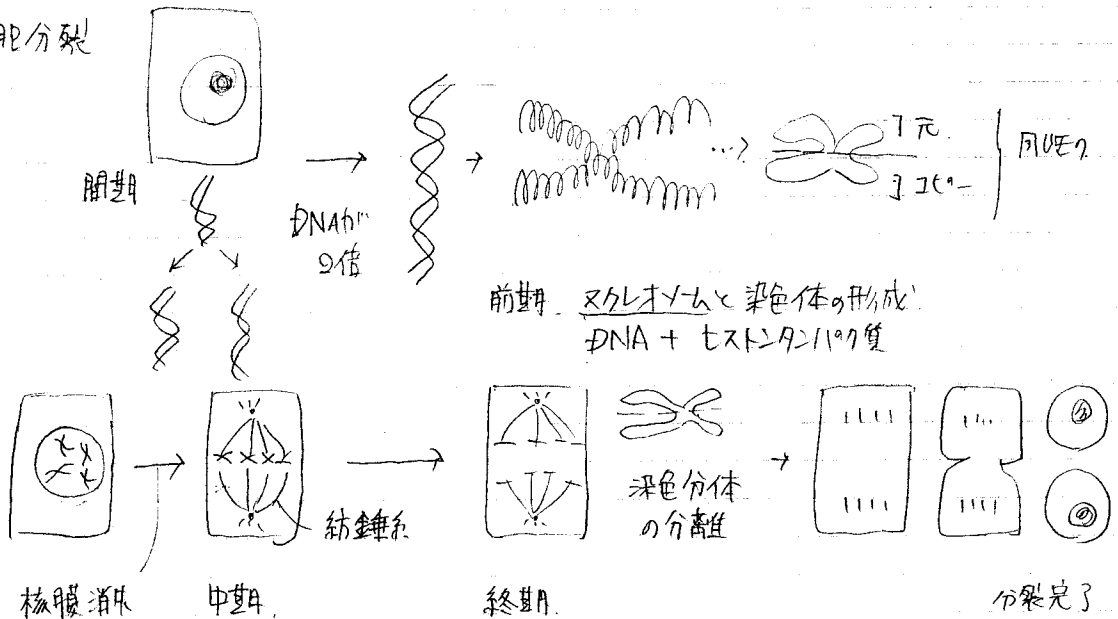 胞分裂
間期
DNAが
2倍
元
コピー
同じモノ
前期 ヌクレオソームと染色体の形成
DNA + ヒストンタンパク質
紡錘糸
染色分体
の分離
核膜消失
中期
終期
分裂完了